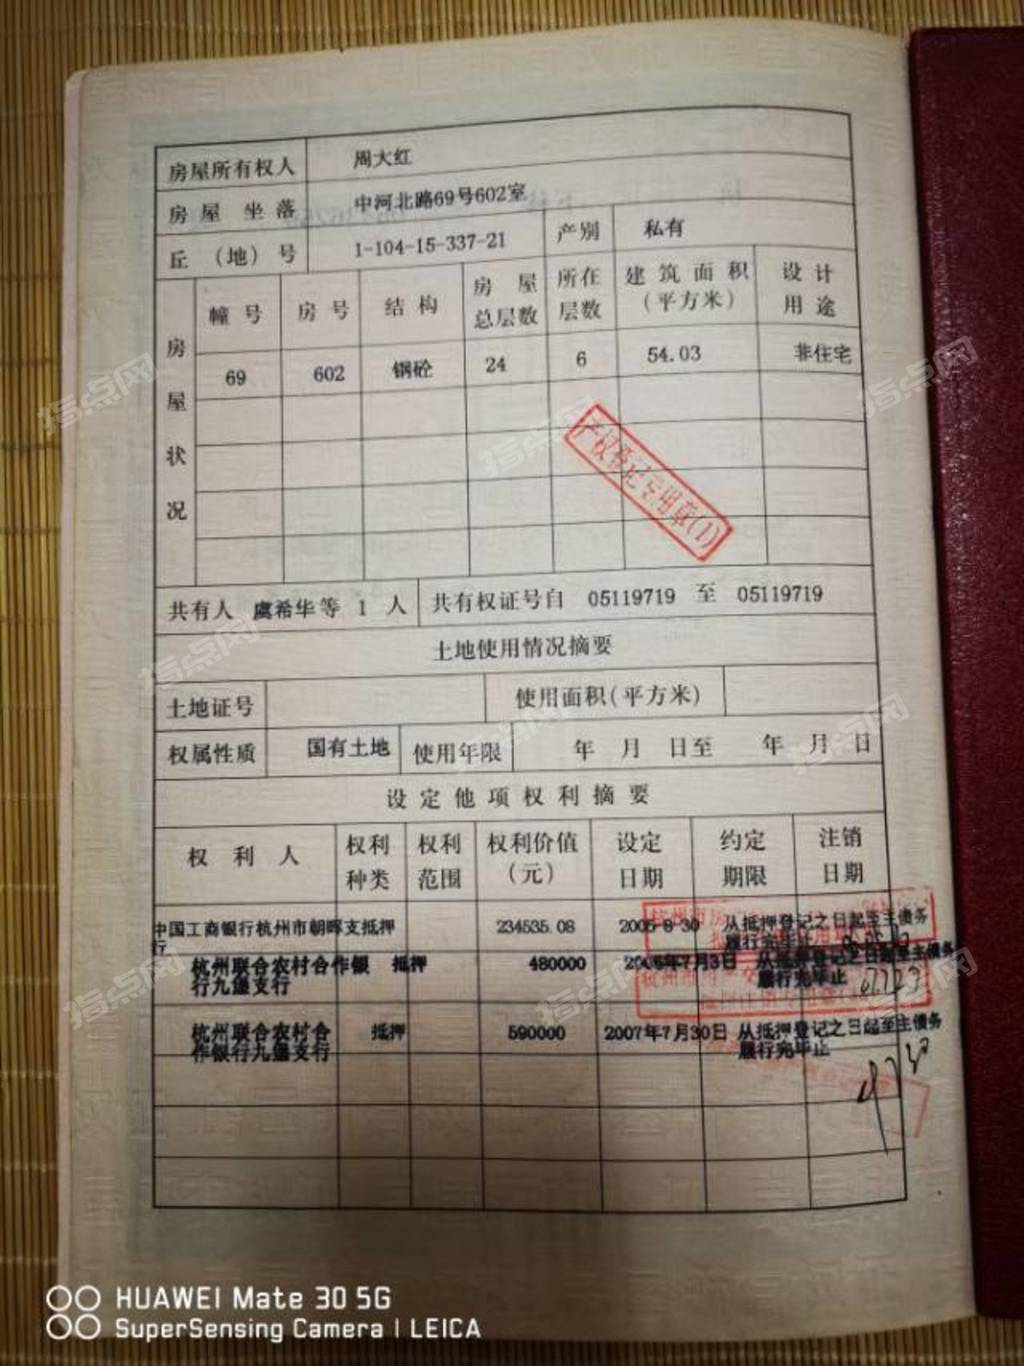 房屋所有权人 周大红
房屋坐落 中河北路69号602室
丘（地）号 1-104-15-337-21 产别 私有
房屋状况
幢号 房号 结构 房屋总层数 所在层数 建筑面积（平方米） 设计用途
69 602 钢砼 24 6 54.03 非住宅
产权登记专用章(1)
共有人 虞希华等 1 人 共有权证号自 05119719 至 05119719
土地使用情况摘要
土地证号 使用面积(平方米)
权属性质 国有土地 使用年限 年 月 日至 年 月 日
设定他项权利摘要
权利人 权利种类 权利范围 权利价值(元) 设定日期 约定期限 注销日期
中国工商银行杭州市朝晖支行 抵押 234535.08 2005-8-30 从抵押登记之日起至主债务履行完毕止
杭州联合农村合作银行九堡支行 抵押 480000 2006年7月3日 从抵押登记之日起至主债务履行完毕止
杭州联合农村合作银行九堡支行 抵押 590000 2007年7月30日 从抵押登记之日起至主债务履行完毕止
指点网
HUAWEI Mate 30 5G
SuperSensing Camera | LEICA